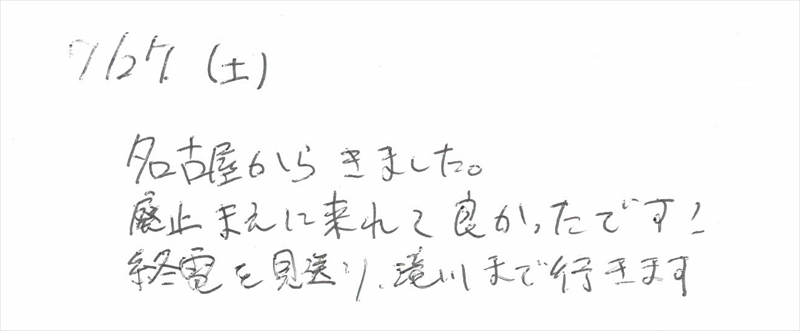 7/27 (土)
名古屋からきました。
廃止まえに来れて良かったです!
終電を見送り、滝川まで行きます